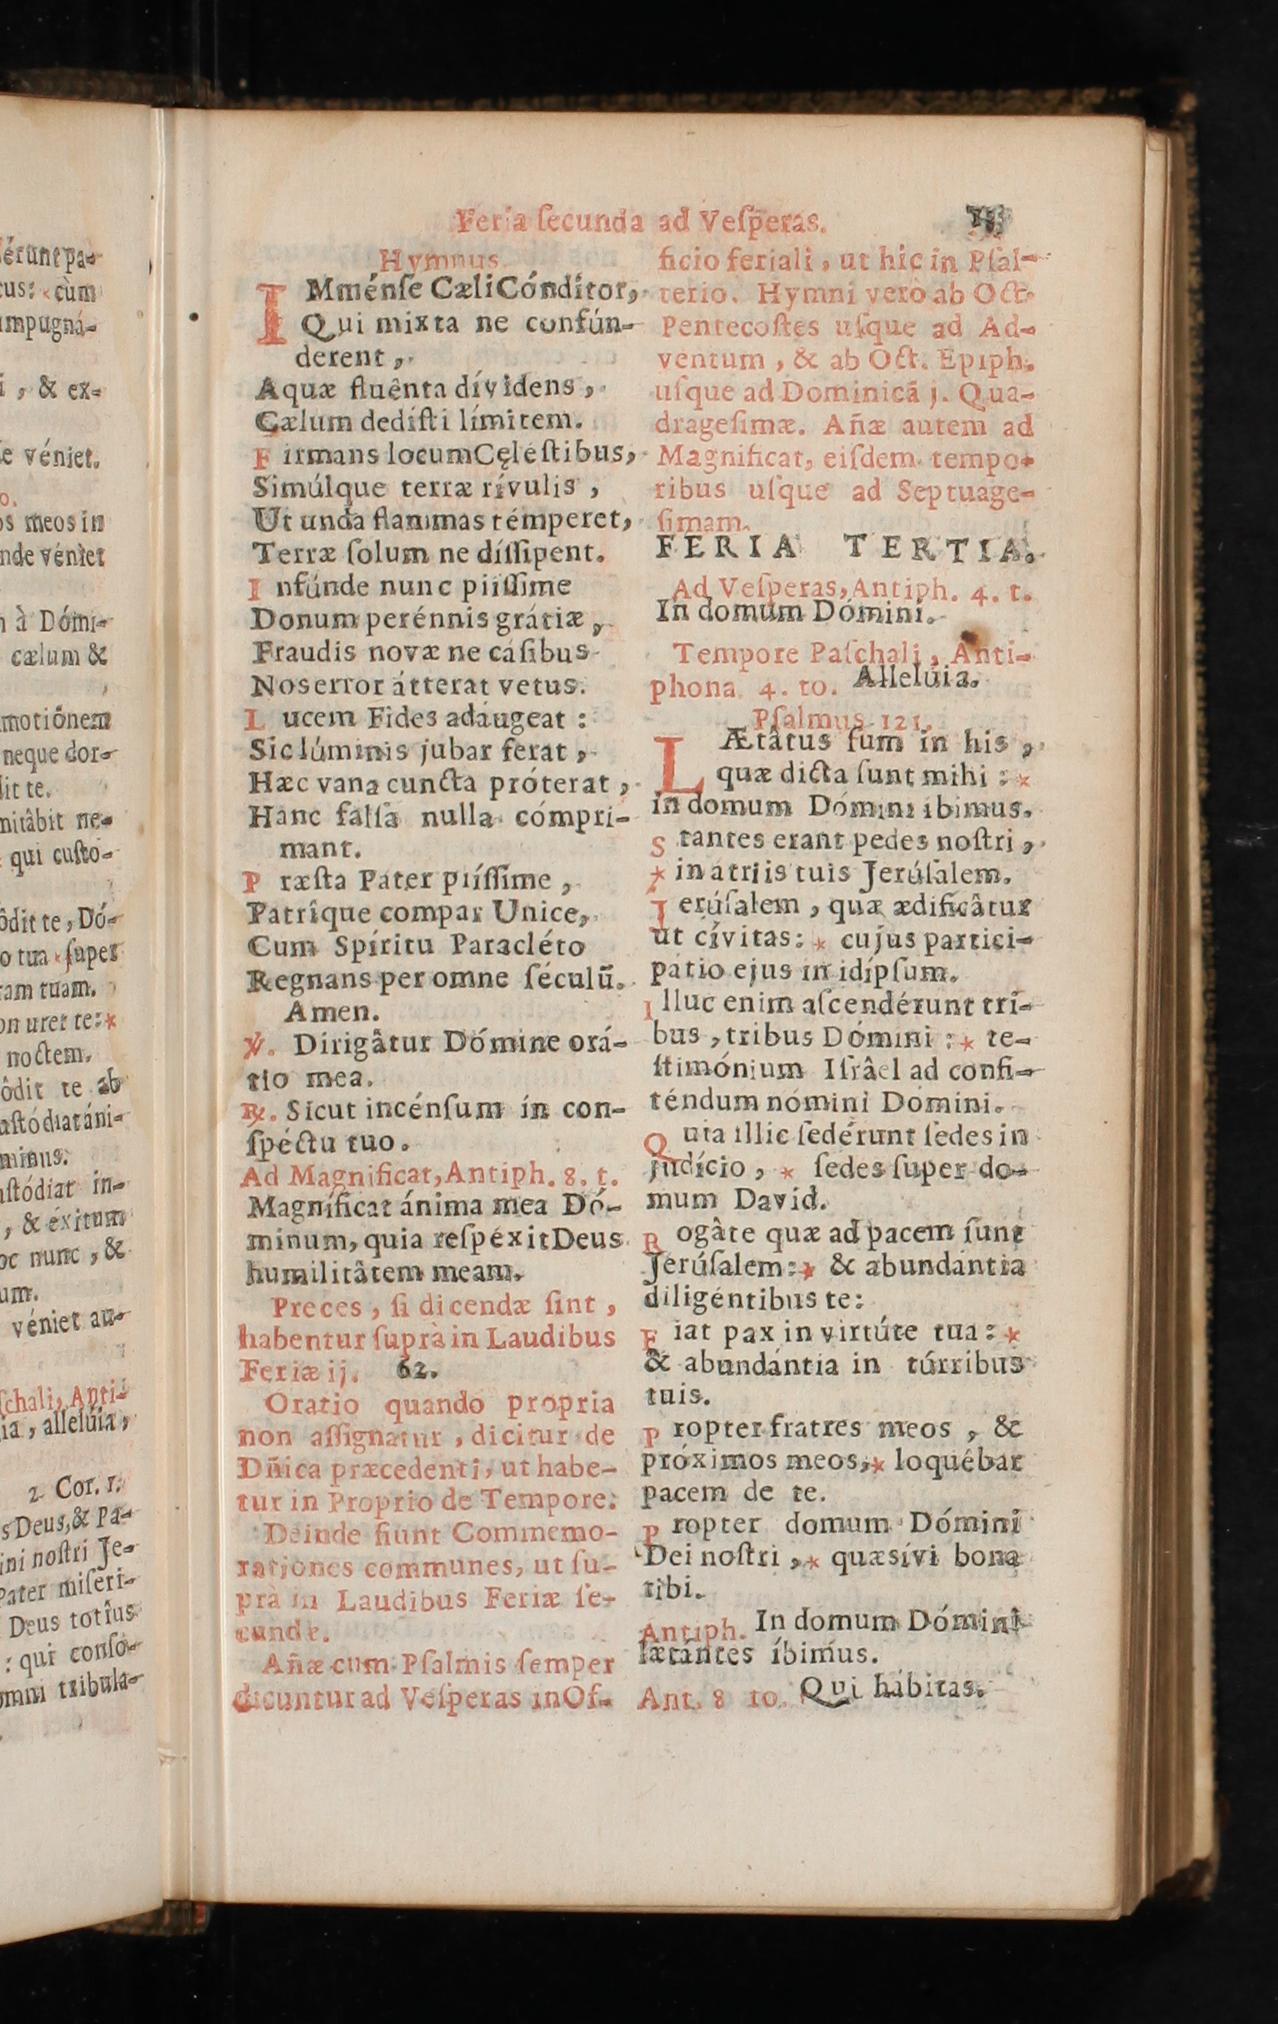 Feria ſecunda ad Veſperas.
Hymnus.
IMménſe Cæli Cónditor,
Qui mixta ne confún-
derent,
Aquæ fluênta dívidens,
Cælum dedíſti límitem.
Firmans locum Cęléſtibus,
Simúlque terræ rívulis,
Ut unda flammas témperet,
Terræ ſolum ne díſſipent.
Infúnde nunc piíſſime
Donum perénnis grátiæ,
Fraudis novæ ne cáſibus
Nos error átterat vetus.
Lucem Fides adáugeat:
Sic lúminis jubar ferat,
Hæc vana cuncta próterat,
Hanc falſa nulla cómpri-
mant.
Præſta Pater piíſſime,
Patrîque compar Unice,
Cum Spíritu Paracléto
Regnans per omne ſéculũ.
Amen.
℣. Dirigâtur Dómine orá-
tio mea.
℟. Sicut incénſum in con-
ſpéctu tuo.
Ad Magnificat, Antiph. 8. t.
Magníficat ánima mea Dó-
minum, quia reſpéxit Deus
humilitâtem meam.
Preces, ſi dicendæ ſint,
habentur ſuprà in Laudibus
Feriæ ij. 62.
Oratio quando propria
non aſſignatur, dicitur de
Dñica præcedenti, ut habe-
tur in Proprio de Tempore.
Deinde fiunt Commemo-
rationes communes, ut ſu-
prà in Laudibus Feriæ ſe-
cundæ.
Añæ cum Pſalmis ſemper
dicuntur ad Veſperas in Of-
ficio feriali, ut hic in Pſal-
terio. Hymni verò ab Oct.
Pentecoſtes uſque ad Ad-
ventum, & ab Oct. Epiph.
uſque ad Dominicã j. Qua-
drageſimæ. Añæ autem ad
Magnificat, eiſdem tempo-
ribus uſque ad Septuage-
ſimam.
FERIA TERTIA.
Ad Veſperas, Antiph. 4. t.
In domum Dómini.
Tempore Paſchali, Anti-
phona 4. to. Allelúia.
Pſalmus 121.
LÆtâtus ſum in his,
quæ dicta ſunt mihi: *
in domum Dómini ibimus.
Stantes erant pedes noſtri,
* in atriis tuis Jerúſalem.
Jerúſalem, quæ ædificâtur
ut cívitas: * cujus partici-
patio ejus in idípſum.
Illuc enim aſcendérunt tri-
bus, tribus Dómini: * te-
ſtimónium Iſrâel ad confi-
téndum nómini Domini.
Quia illic ſedérunt ſedes in
judício, * ſedes ſuper do-
mum David.
Rogâte quæ ad pacem ſunt
Jerúſalem: * & abundántia
diligéntibus te:
Fiat pax in virtúte tua: *
& abundántia in túrribus
tuis.
Propter fratres meos, &
próximos meos, * loquébar
pacem de te.
Propter domum Dómini
Dei noſtri, * quæsívi bona
tibi.
Antiph. In domum Dómini
lætántes íbimus.
Ant. 8 to. Qui hábitas.